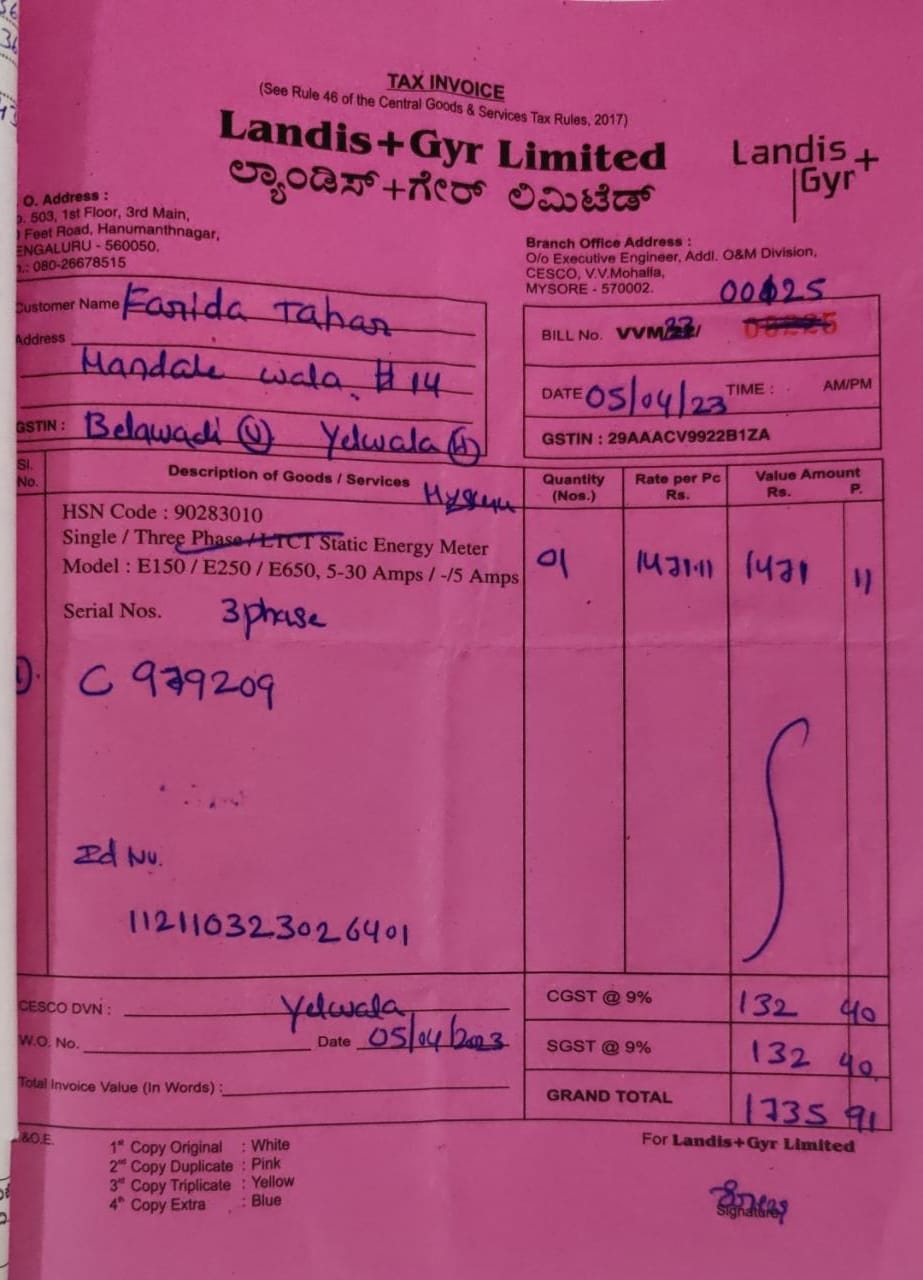 TAX INVOICE
(See Rule 46 of the Central Goods & Services Tax Rules, 2017)
Landis+Gyr Limited
ಲ್ಯಾಂಡಿಸ್+ಗೇರ್ ಲಿಮಿಟೆಡ್
Landis+
Gyr
O. Address :
503, 1st Floor, 3rd Main,
Feet Road, Hanumanthnagar,
ENGALURU - 560050.
: 080-26678515
Branch Office Address :
O/o Executive Engineer, Addl. O&M Division,
CESCO, V.V.Mohalla,
MYSORE - 570002.
Customer Name Farida Tahar
Address
Mandale wala # 14
GSTIN : Belawadi (V) Yelwala (H)
Mysuru
00125
BILL No. VVM/
DATE 05/04/23 TIME : AM/PM
GSTIN : 29AAACV9922B1ZA
Sl. No. Description of Goods / Services Quantity (Nos.) Rate per Pc Rs. Value Amount Rs. P.
HSN Code : 90283010
Single / Three Phase / LTCT Static Energy Meter
Model : E150 / E250 / E650, 5-30 Amps / -/5 Amps 01 1471.11 1471 11
Serial Nos. 3 phase
1). C 979209
Id No.
112110323026401
CESCO DVN : Yelwala
W.O. No. Date 05/04/2023
Total Invoice Value (In Words) :
CGST @ 9% 132 40
SGST @ 9% 132 40
GRAND TOTAL 1735 91
&O.E.
1st Copy Original : White
2nd Copy Duplicate : Pink
3rd Copy Triplicate : Yellow
4th Copy Extra : Blue
For Landis+Gyr Limited
Signature